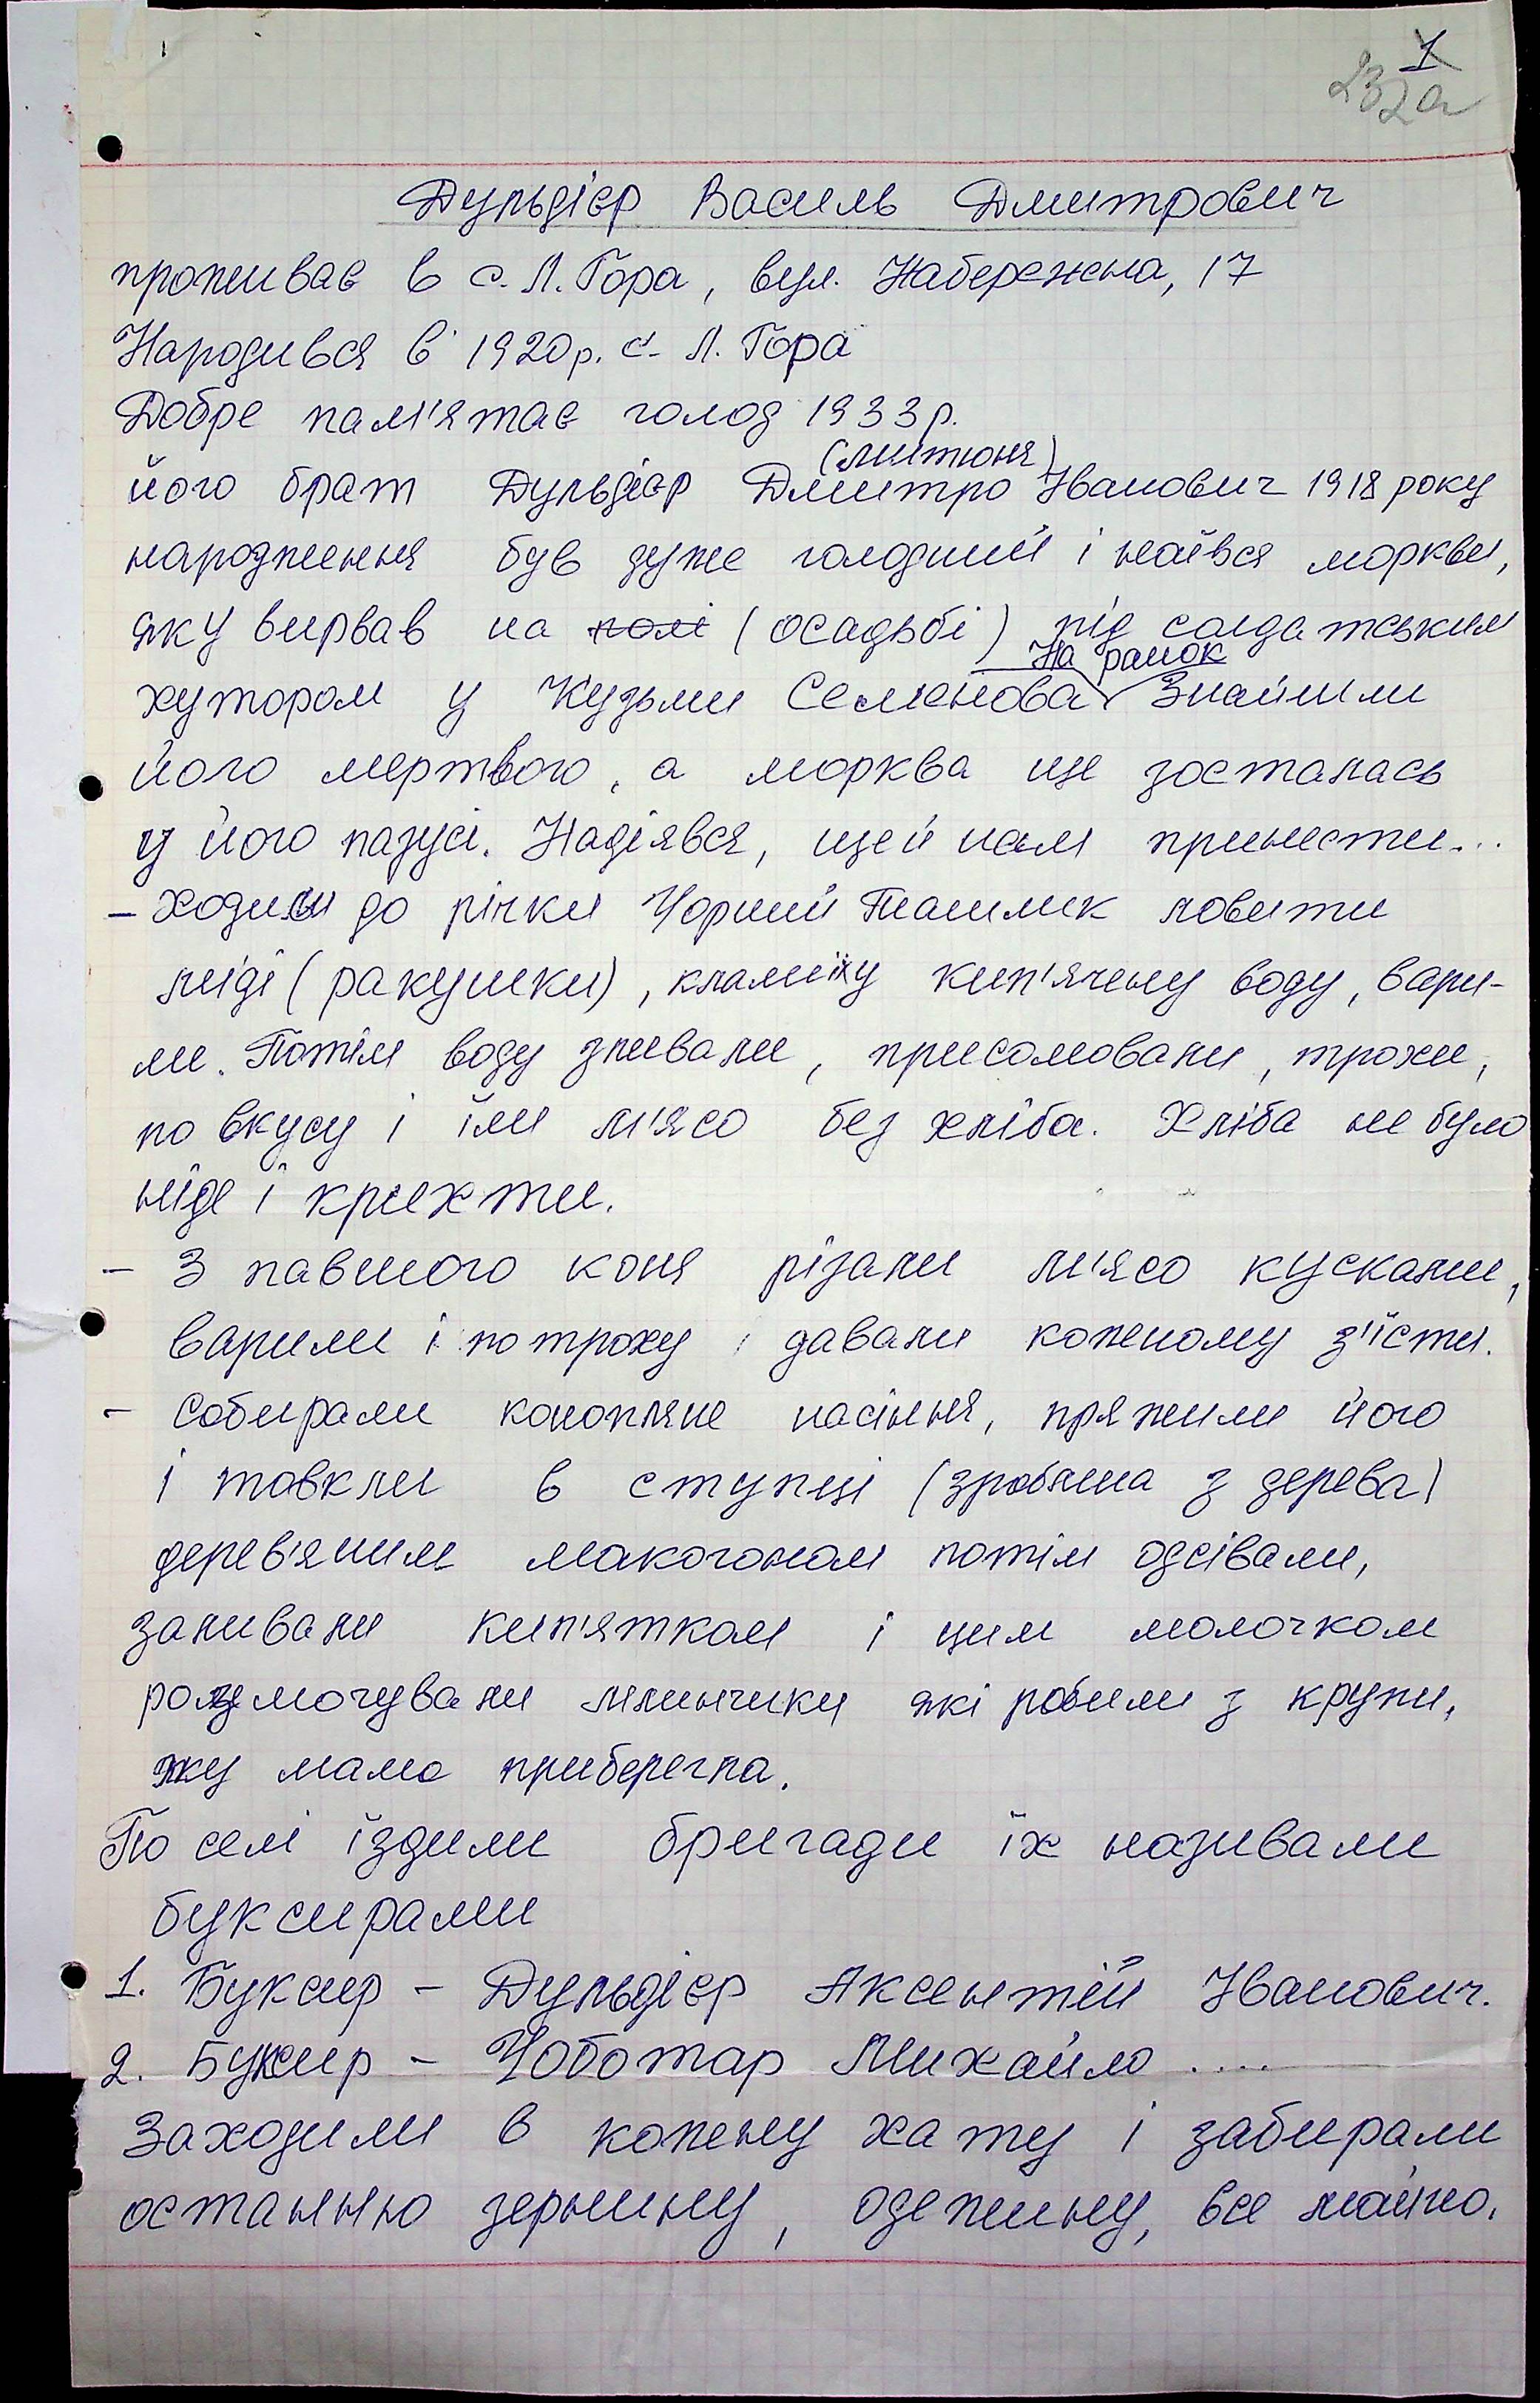 1
232а
Дульдієр Василь Дмитрович
проживає в с. Л. Гора, вул. Набережна, 17
Народився в 1920р. с. Л. Гора
Добре пам'ятає голод 1933р.
(митюня)
його брат Дульдієр Дмитро Іванович 1918 року
народження був дуже голодний і наївся моркви,
яку вирвав на полі (осадьбі) під солдатським
На ранок
хутором у Кузьми Семенова знайшли
його мертвого, а морква ще зосталась
у його пазусі. Надіявся, щей нам принести...
- ходили до річки Чорний Ташлик ловити
міді (ракушки), клали їх у кип'ячену воду, вари-
ли. Потім воду зливали, присолювали, трохи,
по вкусу і їли м'ясо без хліба. Хліба не було
ніде і крихти.
- З павшого коня різали м'ясо кусками,
варили і потроху давали кожному з'їсти.
- собирали конопляне насіння, пряжили його
і товкли в ступці (зроблена з дерева)
дерев'яним макогоном потім одсівали,
заливали кип'ятком і цим молочком
розмочували млинчики які робили з крупи,
яку мама приберегла.
По селі їздили бригади їх називали
буксирами
1. Буксир - Дульдієр Аксентій Іванович.
2. Буксир - Чоботар Михайло ....
Заходили в кожну хату і забирали
останню зернину, одежину, все майно.